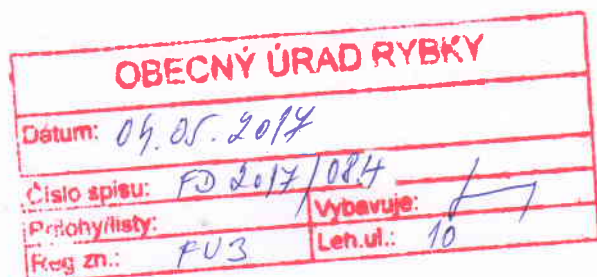 OBECNÝ ÚRAD RYBKY
Dátum: 04.05.2017
Číslo spisu: FD 2017/084
Prílohy/listy: Vybavuje:
Reg zn.: FU3 Leh.ul.: 10